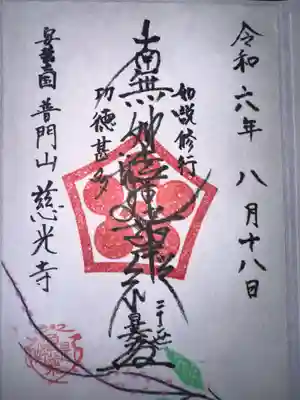 令和六年 八月十八日
如説修行
南無妙法蓮華経
功徳甚多
安藝国 普門山 慈光寺